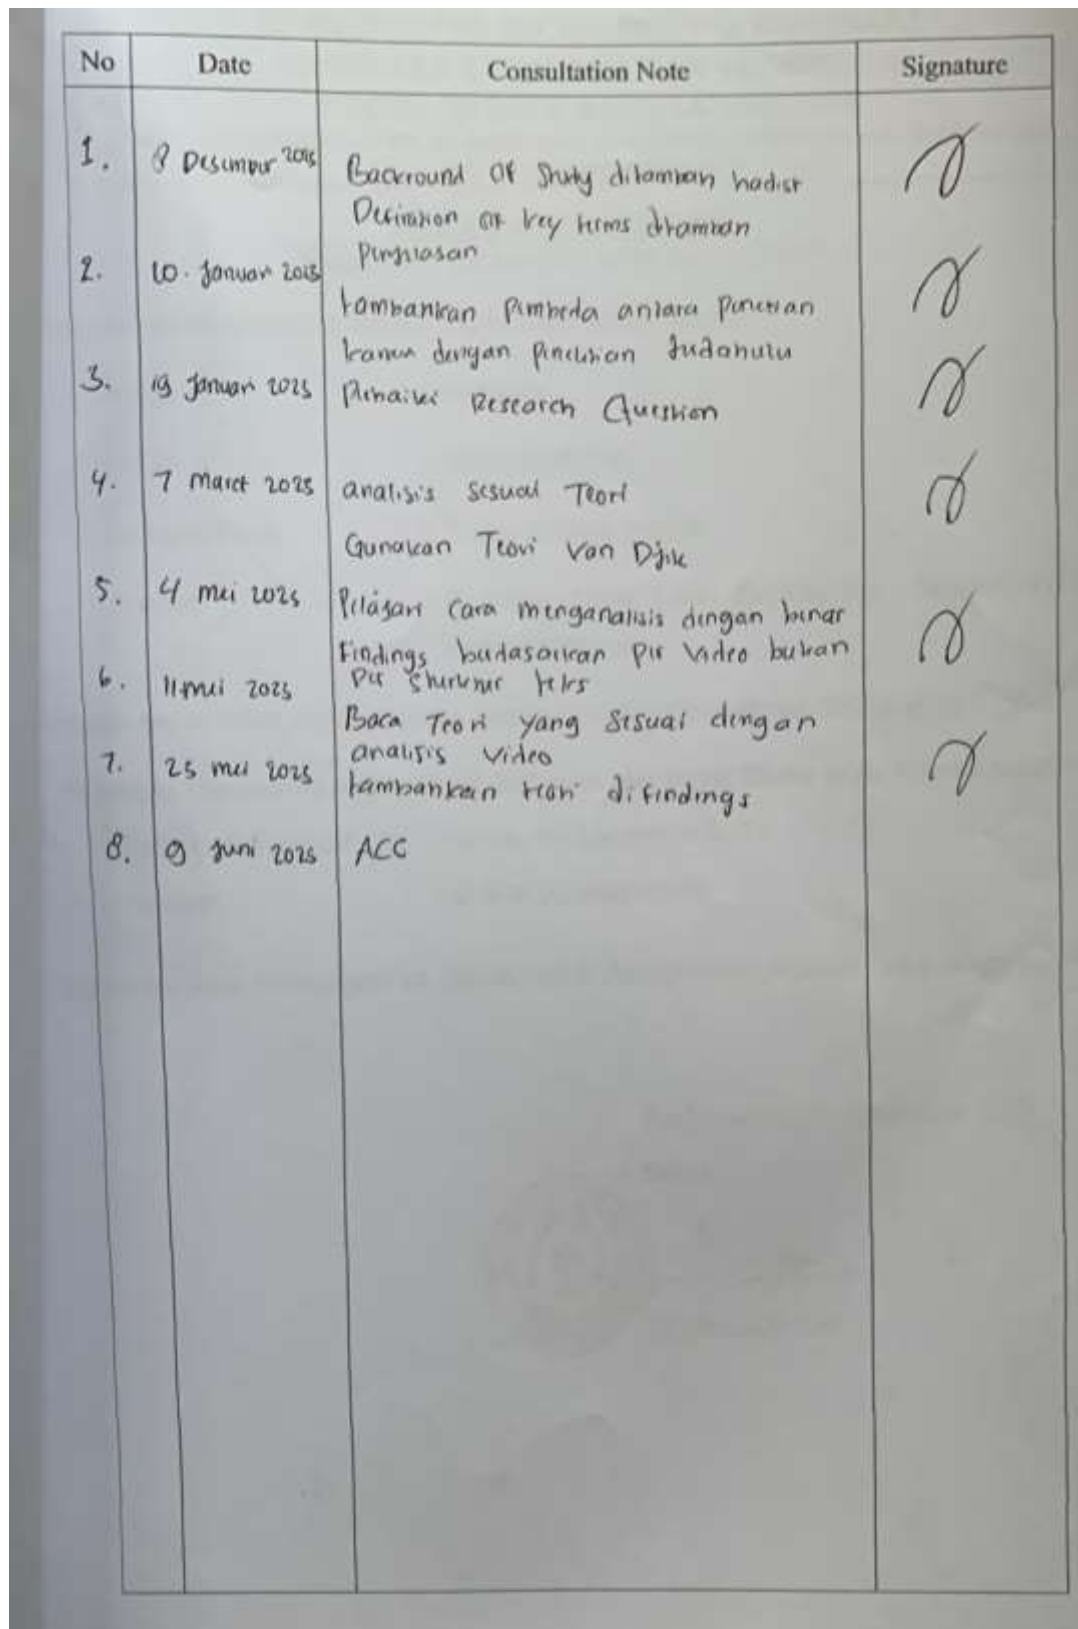 No Date Consultation Note Signature
1. 8 Desember 2025 Backround Of Study ditambah hadist
Definition of key terms ditambah
penjelasan
2. 10. Januari 2025
tambahkan pembeda antara penelitian
kamu dengan penelitian terdahulu
3. 19 Januari 2025 Perbaiki Research Question
4. 7 Maret 2025 analisis sesuai Teori
Gunakan Teori Van Djik
5. 4 mei 2025 Pelajari cara menganalisis dengan benar
Findings berdasarkan per video bukan
6. 11 mei 2025 per struktur teks
Baca Teori yang sesuai dengan
7. 25 mei 2025 analisis video
tambahkan teori di findings
8. 9 juni 2025 ACC